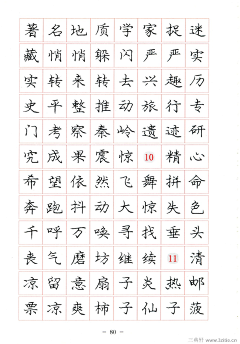 著名地质学家捉迷
藏悄悄躲闪严严实
实转来转去兴趣历
史平整推动旅行专
门考察秦岭遗迹研
究成果震惊10精心
希望依然飞舞拼命
奔跑抖动大惊失色
千呼万唤寻找垂头
丧气磨坊继续11清
凉留意扇子炎热邮
票凉爽柿子仙子菠
- 80 -